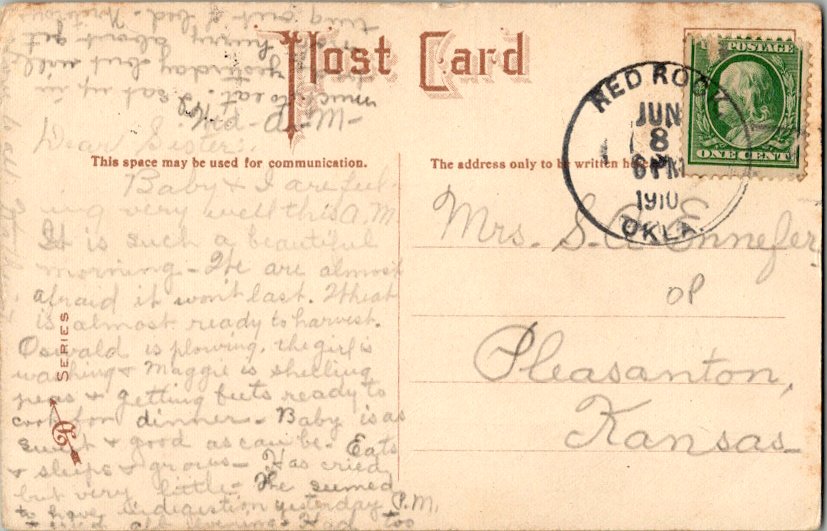 Post Card
This space may be used for communication.
The address only to be written
RED ROCK,
JUN
8
6 PM
1910
OKLA.
POSTAGE
ONE CENT
Wed-A-M-
Dear Sister:
Baby & I are feel-
ing very well this A.M.
It is such a beautiful
morning - We are almost
afraid it won't last. Wheat
is almost ready to harvest.
Oswald is plowing, the girl is
washing & Maggie is shelling
peas & getting beets ready to
cook for dinner - Baby is as
sweet & good as can be. Eats
& sleeps & grows - Has cried
but very little - He seemed
to have indigestion yesterday P.M.
evening. Had too
much to eat. I sat up in
yesterday but will
hurry about get
ting out of bed.
Love to all
Mrs. S. A. Ennefer
OP
Pleasanton,
Kansas-
SERIES